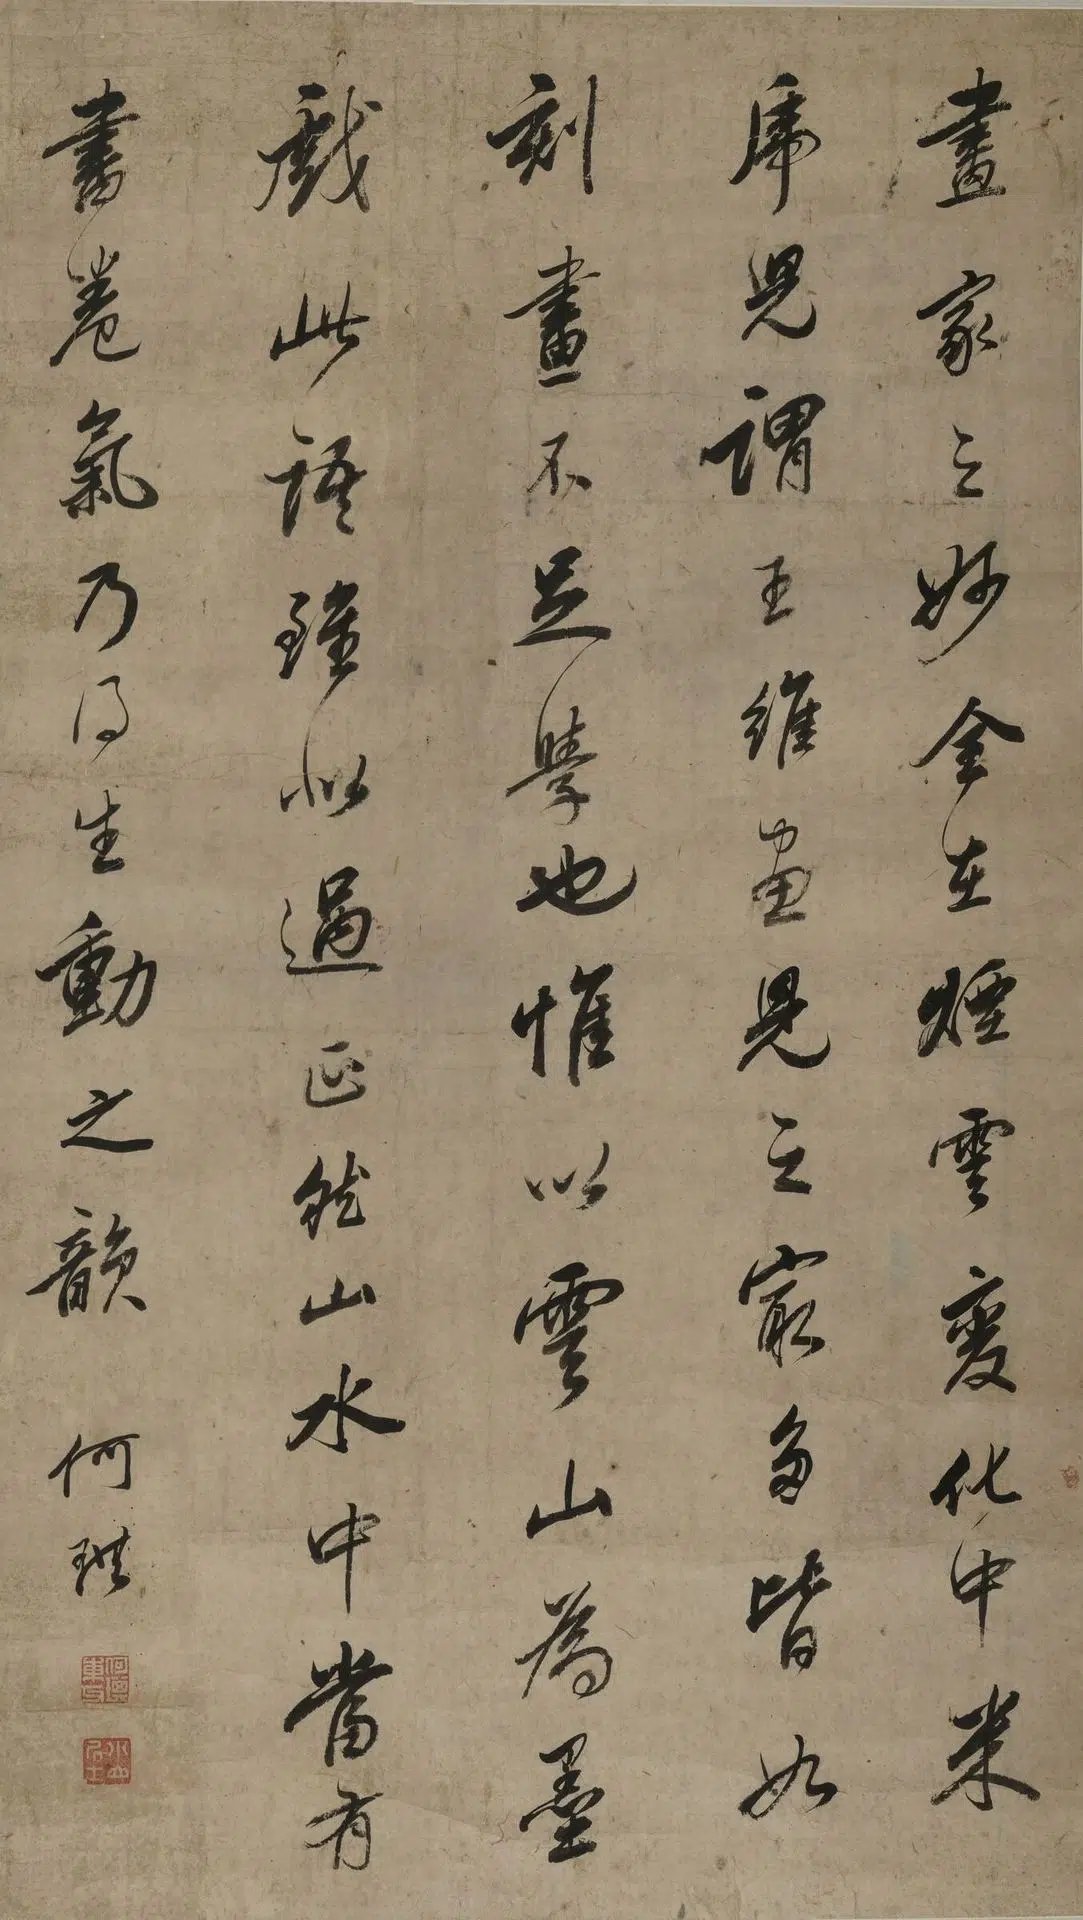 畫家之妙全在煙雲變化中米
虎兒謂王維畫見之最多皆如
刻畫不足學也惟以雲山為墨
戲此語雖似過正然山水中當有
書卷氣乃得生動之韻 何琪